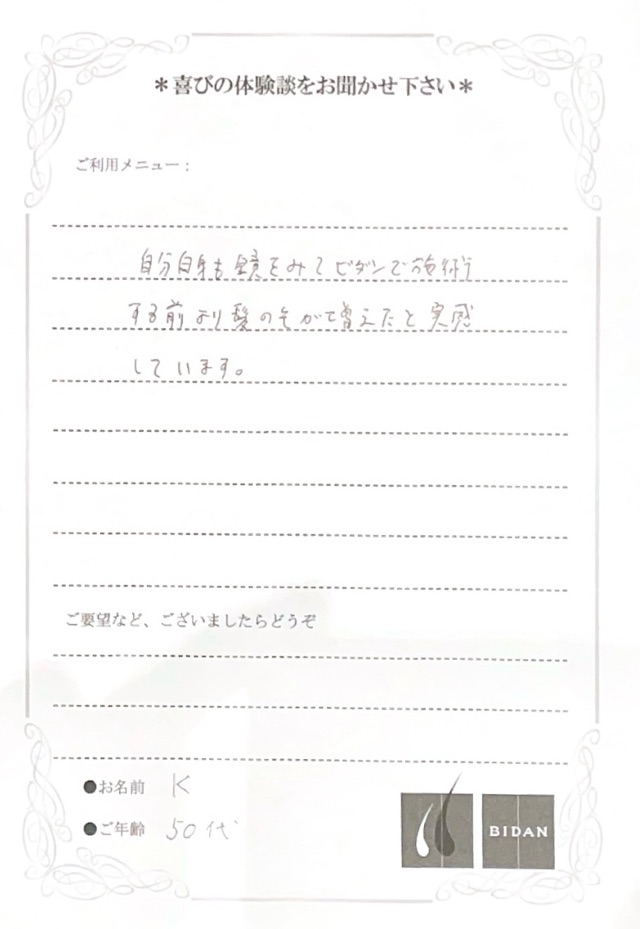 ＊喜びの体験談をお聞かせ下さい＊
ご利用メニュー：
自分自身も鏡をみてビダンで施術
する前より髪の毛が増えたと実感
しています。
ご要望など、ございましたらどうぞ
●お名前 K
●ご年齢 50代
BIDAN